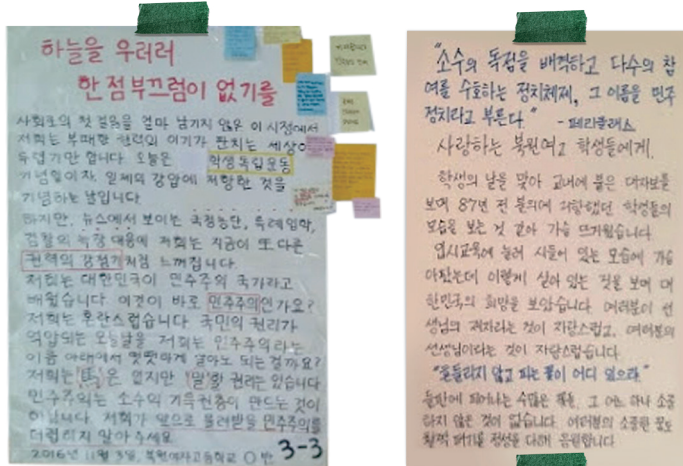 하늘을 우러러
한 점 부끄럼이 없기를
사회로의 첫 걸음을 얼마 남기지 않은 이 시점에서
저희는 부패한 권력의 이기가 판치는 세상이
두렵기만 합니다. 오늘은 학생독립운동
기념일이자, 일제의 강압에 저항한 것을
기념하는 날입니다.
하지만, 뉴스에서 보이는 국정농단, 특례입학,
검찰의 늑장 대응에 저희는 지금이 또 다른
권력의 강점기처럼 느껴집니다.
저희는 대한민국이 민주주의 국가라고
배웠습니다. 이것이 바로 민주주의인가요?
저희는 혼란스럽습니다. 국민의 권리가
억압되는 오늘날을 저희는 민주주의라는
이름 아래에서 떳떳하게 살아도 되는 걸까요?
저희는 은 없지만 '말'할 권리는 있습니다
민주주의는 소수의 기득권층이 만드는 것이
아닙니다. 저희가 앞으로 물려받을 민주주의를
더럽히지 말아주세요
2016년 11월 3일, 북원여자고등학교 ○반
3-3
"소수의 독점을 배격하고 다수의 참
여를 수호하는 정치체제, 그 이름을 민주
정치라고 부른다."
-페리클래스
사랑하는 북원여고 학생들에게.
학생의 날을 맞아 교내에 붙은 대자보를
보며 87년 전 불의에 저항했던 학생들의
모습을 보는 것 같아 가슴 뜨거웠습니다.
입시교육에 눌려 시들어 있는 모습에 가슴
아팠는데 이렇게 살아 있는 것을 보며 대
한민국의 희망을 보았습니다. 여러분이 선
생님의 제자라는 것이 자랑스럽고, 여러분의
선생님이라는 것이 자랑스럽습니다.
"흔들리지 않고 피는 꽃이 어디 있으랴"
들판에 피어나는 수많은 꽃들, 그 어느 하나 소중
하지 않은 것이 없습니다. 여러분의 소중한 꿈도
활짝 피기를 정성을 다해 응원합니다.